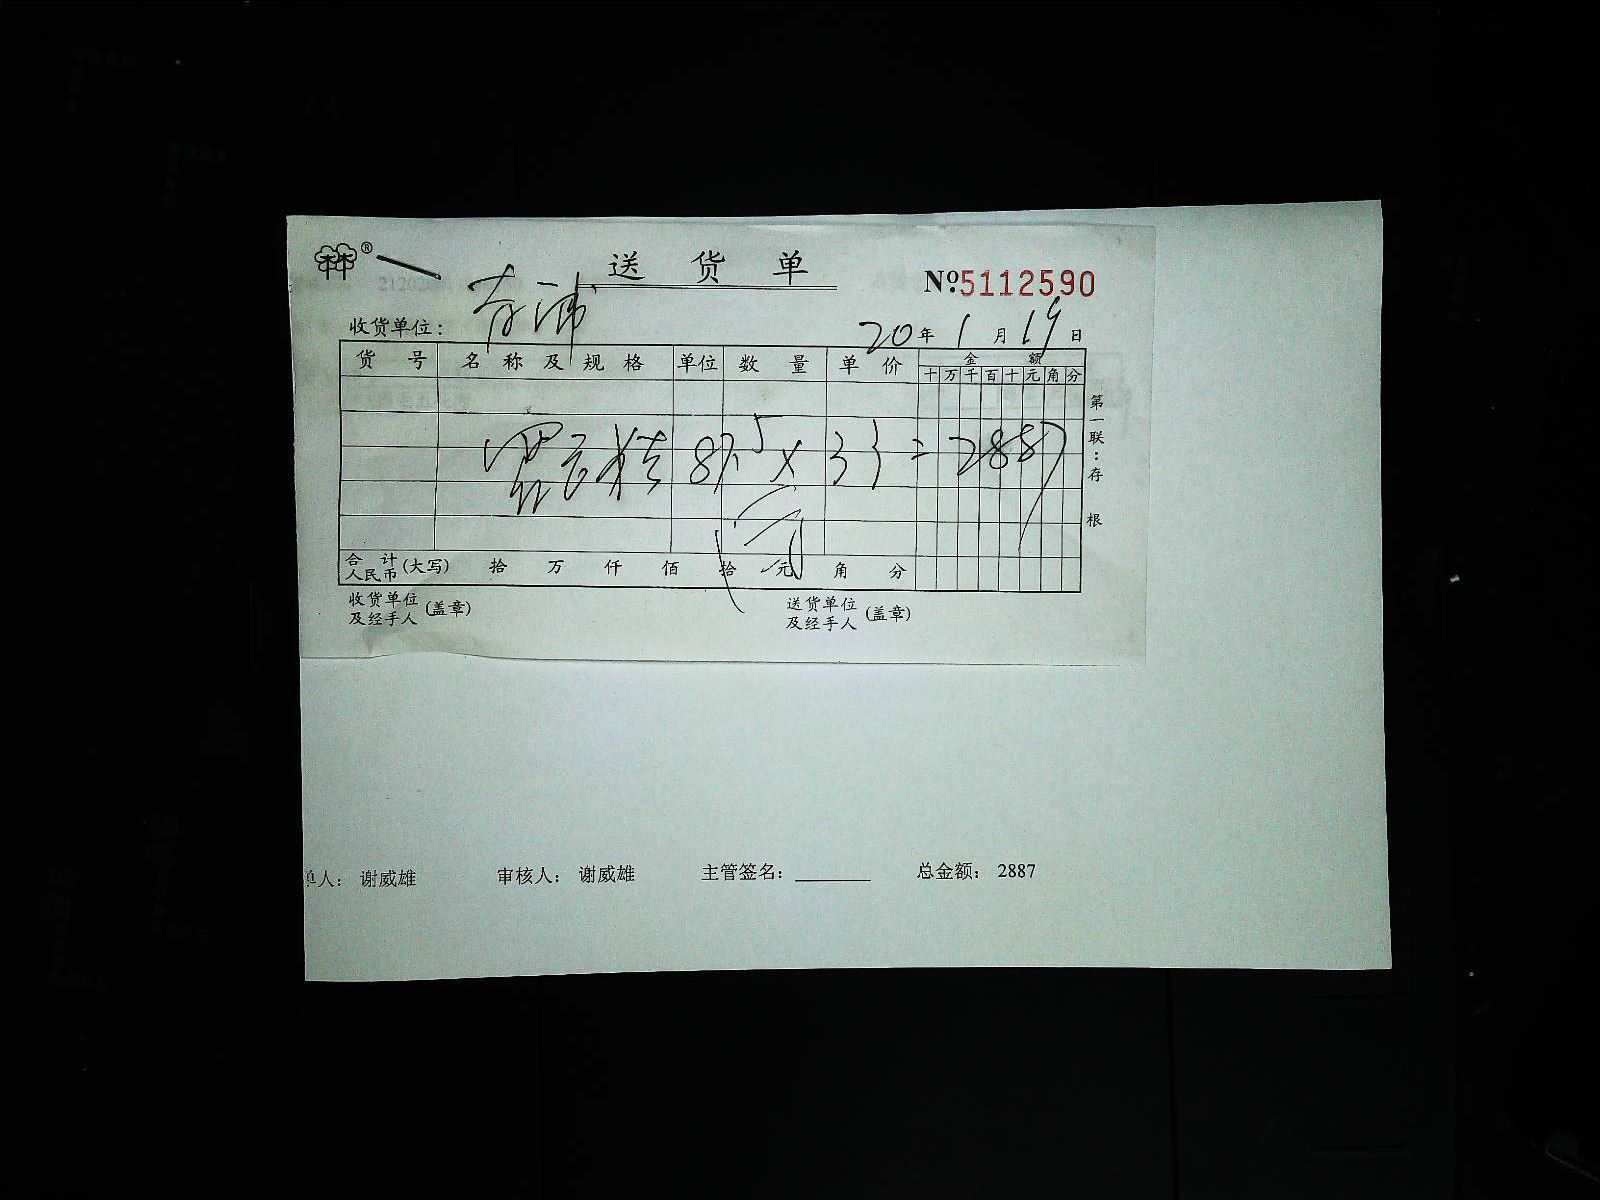 送货单
№:5112590
收货单位:
20年1月19日
货号 名称及规格 单位 数量 单价 金额
十万千百十元角分
87.5 × 33 = 2887
合计人民币(大写) 拾 万 仟 佰 拾 元 角 分
收货单位及经手人(盖章) 送货单位及经手人(盖章)
第一联:存根
单人: 谢威雄 审核人: 谢威雄 主管签名: 总金额: 2887